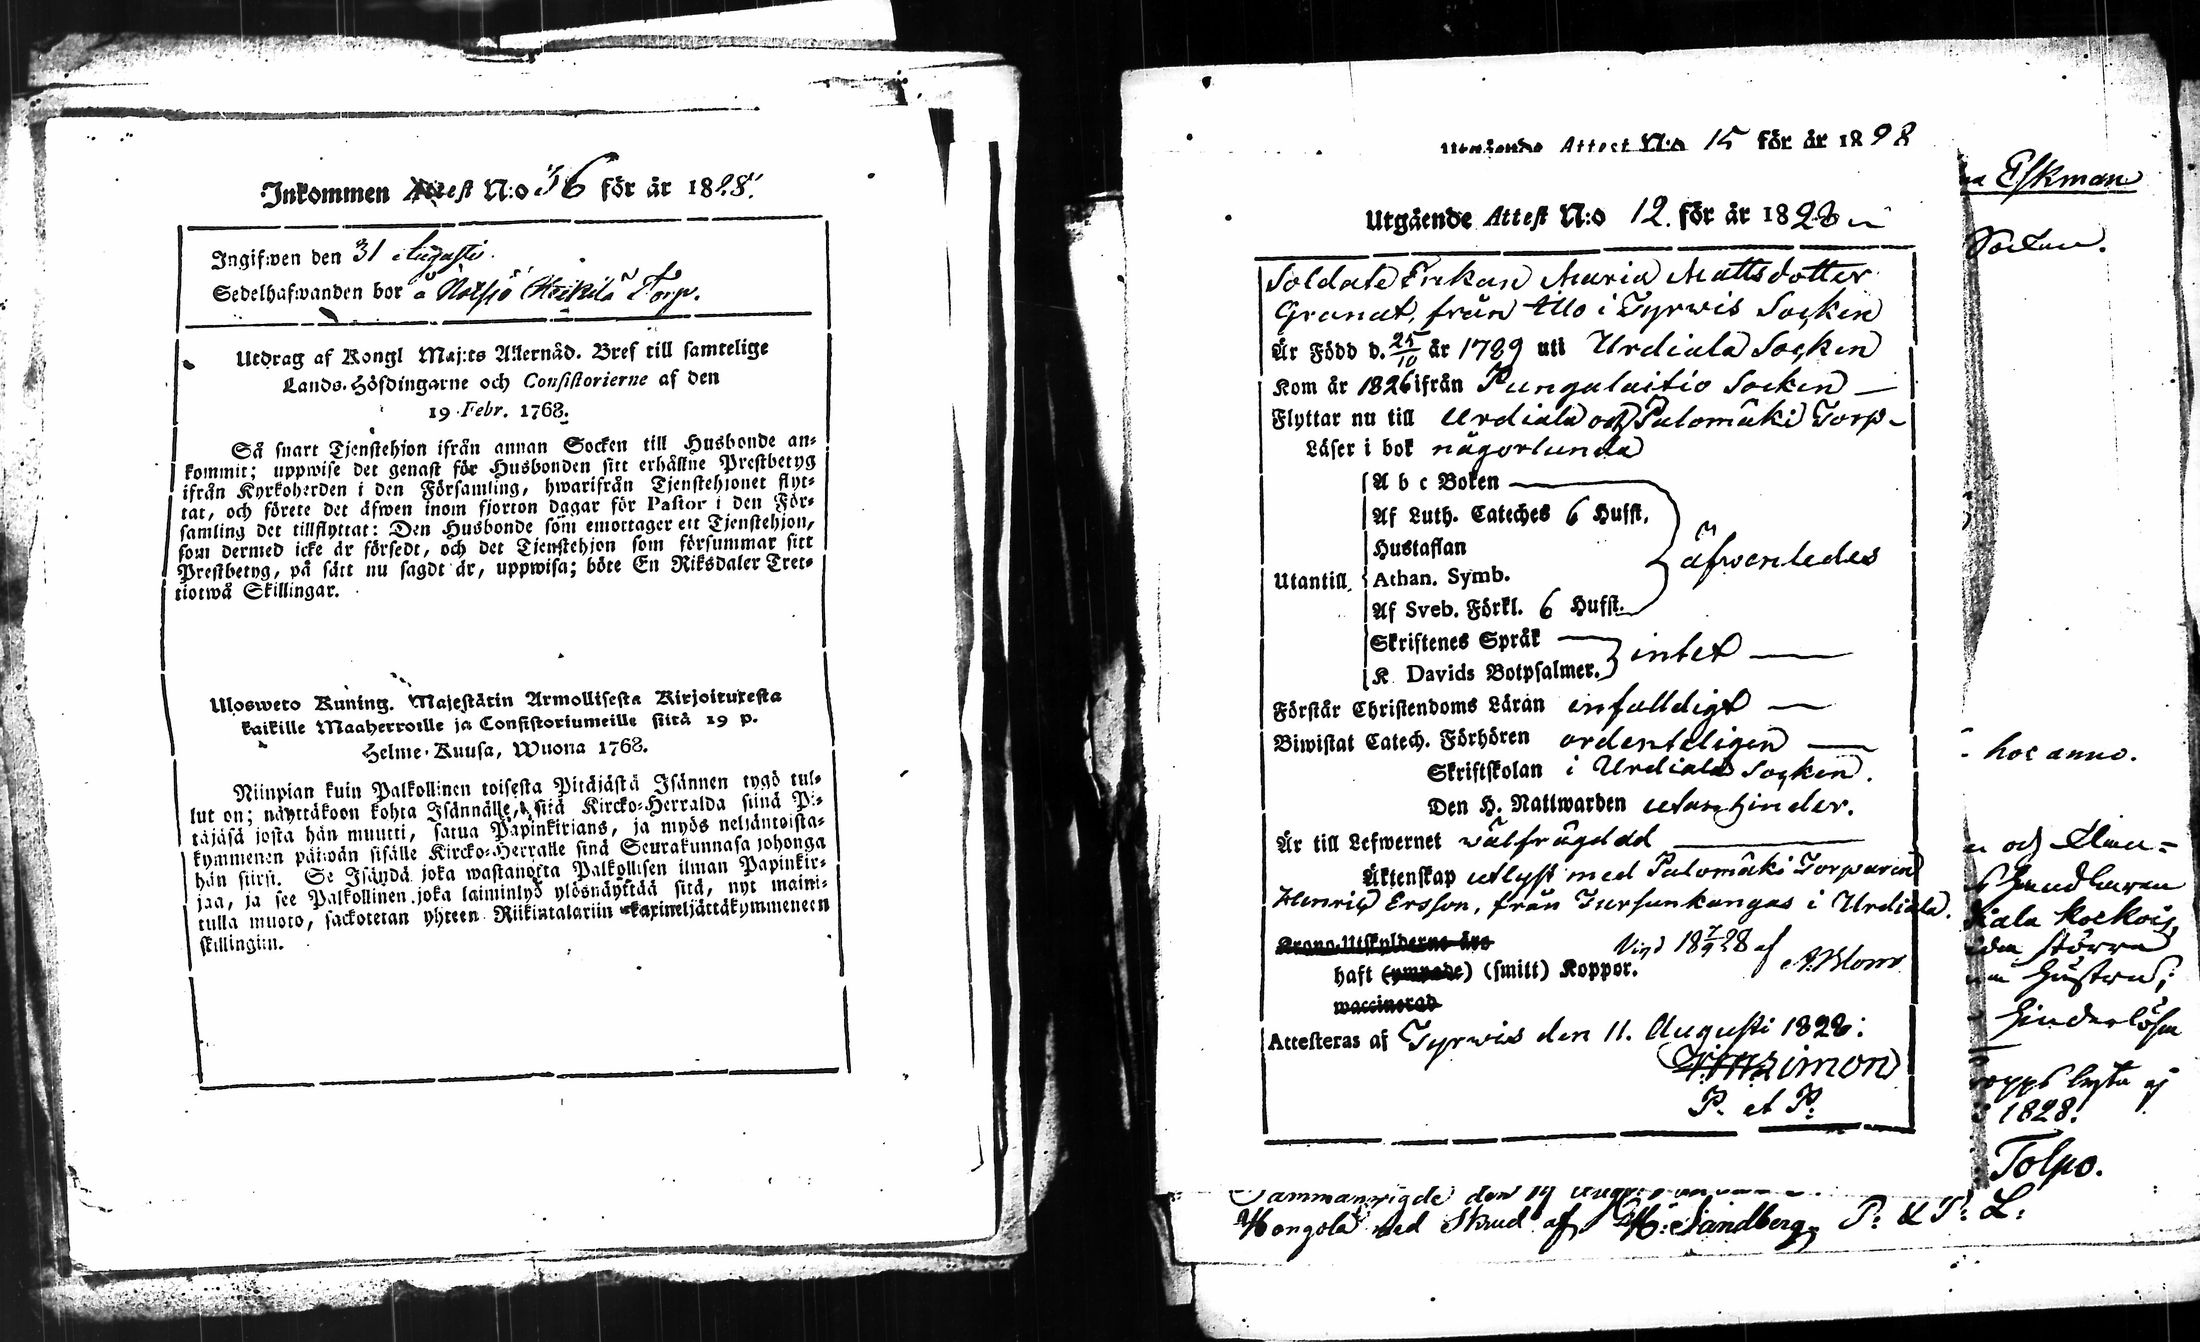 Inkommen Attest N:o 36 för år 1828.
Ingifwen den 31 Augusti.
Sedelhafwanden bor å Torp.
Utdrag af Kongl Maj:ts Allernåd. Bref till samtelige
Lands-Höfdingarne och Consistorierne af den
19 Febr. 1768.
Så snart Tjenstehjon ifrån annan Socken till Husbonde an-
kommit; uppwise det genast för Husbonden sitt erhållne Prestbetyg
ifrån Kyrkoherden i den Församling, hwarifrån Tjenstehjonet flyt-
tat, och förete det äfwen inom fjorton dagar för Pastor i den För-
samling det tillflyttat: Den Husbonde som emottager ett Tjenstehjon,
som dermed icke är försedt, och det Tjenstehjon som försummar sitt
Prestbetyg, på sätt nu sagdt är, uppwisa; böte En Riksdaler Tret-
tiotwå Skillingar.
Ulosweto Kuning. Majestätin Armollisesta Kirjoituresta
kaikille Maaherroille ja Consistoriumeille siitä 19 p.
Helme-Kuusa, Wuona 1768.
Niinpian kuin Palkollinen toisesta Pitäjästä Isännen tygö tul-
lut on; näyttäkoon kohta Isännälle, sitä Kircko-Herralda siinä Pi-
täjäsä josta hän muutti, saatua Papinkirjans, ja myös neljäntoista-
kymmenen päiwän sisälle Kircko-Herralle siinä Seurakunnasa johonga
hän siirsi. Se Isändä joka wastanotta Palkollisen ilman Papinkir-
jaa, ja see Palkollinen joka laiminlyö ylösnäyttää sitä, nyt maini-
tulla muoto, sackotetan yhteen Riikintalariin kaxineljättäkymmeneen
skillingiin.
Utgående Attest N:o 15 för år 1828
Utgående Attest N:o 12. för år 1828
Soldate Enkan Maria Mattsdotter
Granat, från Illo i Tyrwis Socken
Är Född d. 25/10 år 1789 uti Urdiala Socken
Kom år 1826 ifrån Pungalaitio Socken —
Flyttar nu till Urdiala och Palomäki Torp –
Läser i bok någorlunda
Utantill
A b c Boken
Af Luth. Cateches 6 Hufst.
Hustaflan
Athan. Symb.
Af Sveb. Förkl. 6 Hufst.
äfwenledes
Skriftenes Språk
K Davids Botpsalmer.
intet —
Förstår Christendoms Läran enfalldigt —
Biwistat Catech. Förhören ordenteligen —
Skriftskolan i Urdiala Socken.
Den H. Nattwarden utan hinder.
Är till Lefwernet wälfrägdad —
Äktenskap utlyst med Palomäki Torparen
Henric Ersson, från Jursunkangas i Urdiala.
Krono-Utskylderne äro
Vigd 18 7/9 28 af
A. Blom
haft (ympade) (smitt) Koppor.
waccinerad
Attesteras af Tyrwis den 11. Augusti 1828.
P. et P.
Sammanwigde den 19
Hongola med Skrud af Sandberg, P. & P. L.
Eskman
Socken.
hoc anno.
och
större
hustru;
hinderlöse
lysta af
1828.
Tolpo.